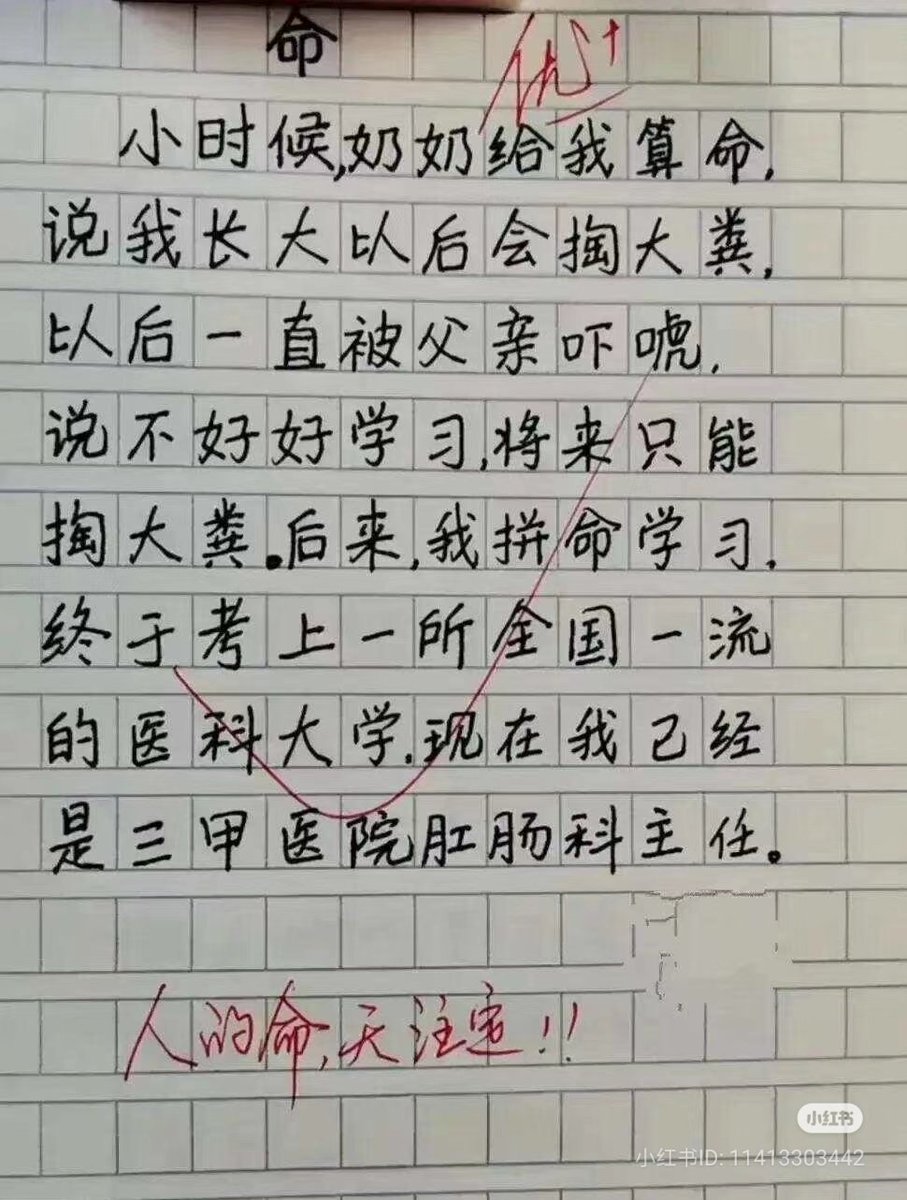 命
优+
小时候,奶奶给我算命,
说我长大以后会掏大粪,
以后一直被父亲吓唬,
说不好好学习,将来只能
掏大粪。后来,我拼命学习,
终于考上一所全国一流
的医科大学.现在我已经
是三甲医院肛肠科主任。
人的命,天注定!!
小红书
小红书ID: 11413303442